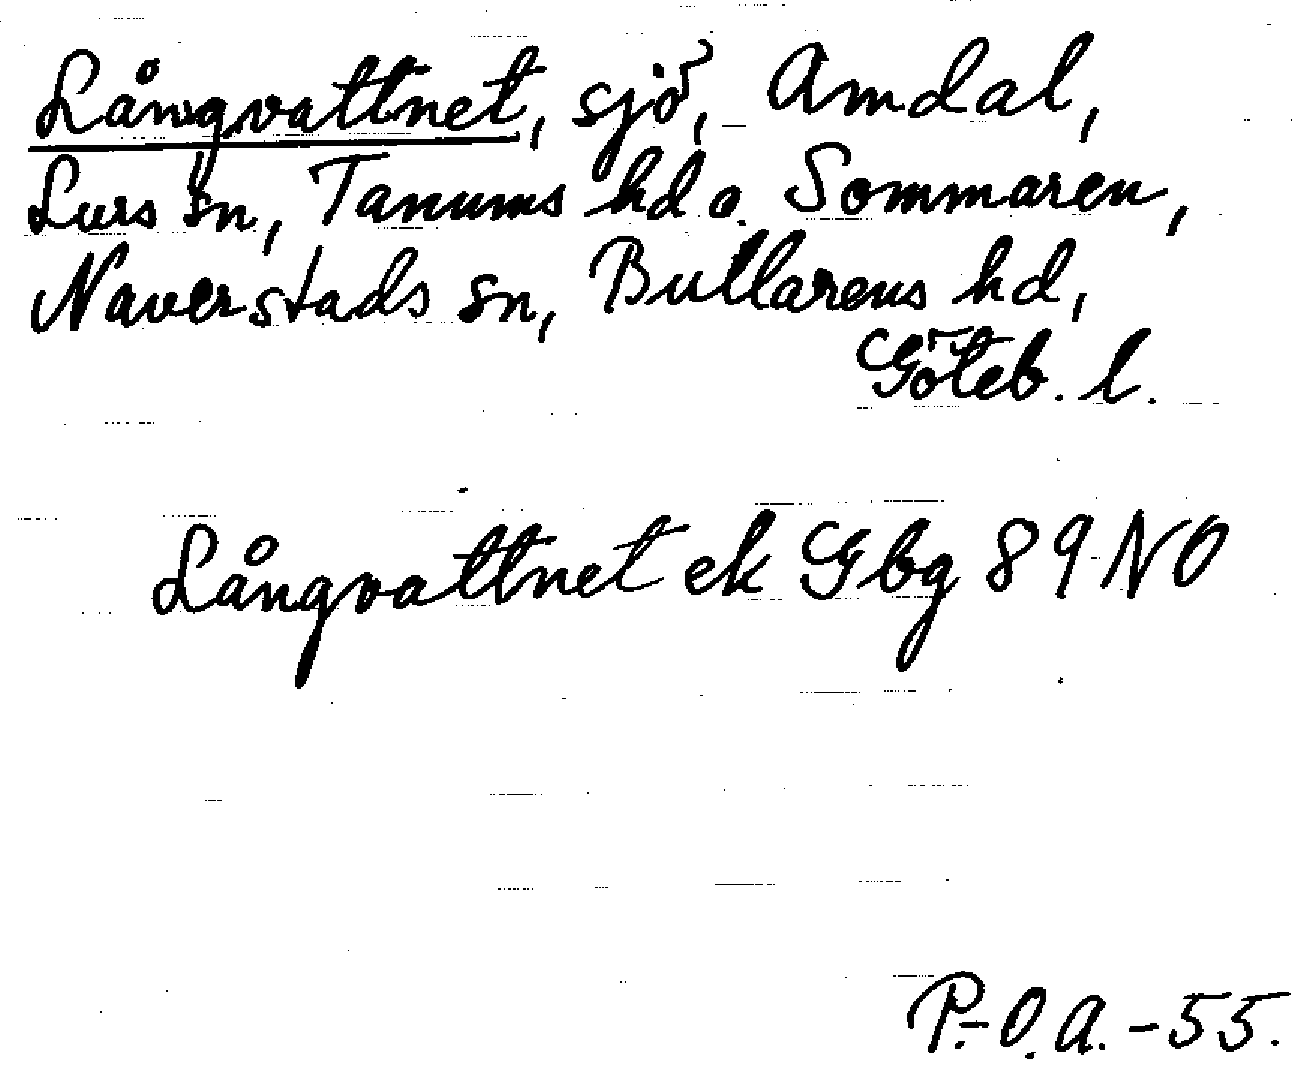 Långvattnet, sjö, Amdal,
Lurs sn, Tanums hd o. Sommaren,
Naverstads sn, Bullarens hd,
Göteb. l.
Långvattnet ek Gbg 89 NO
P.-O.A.-55.